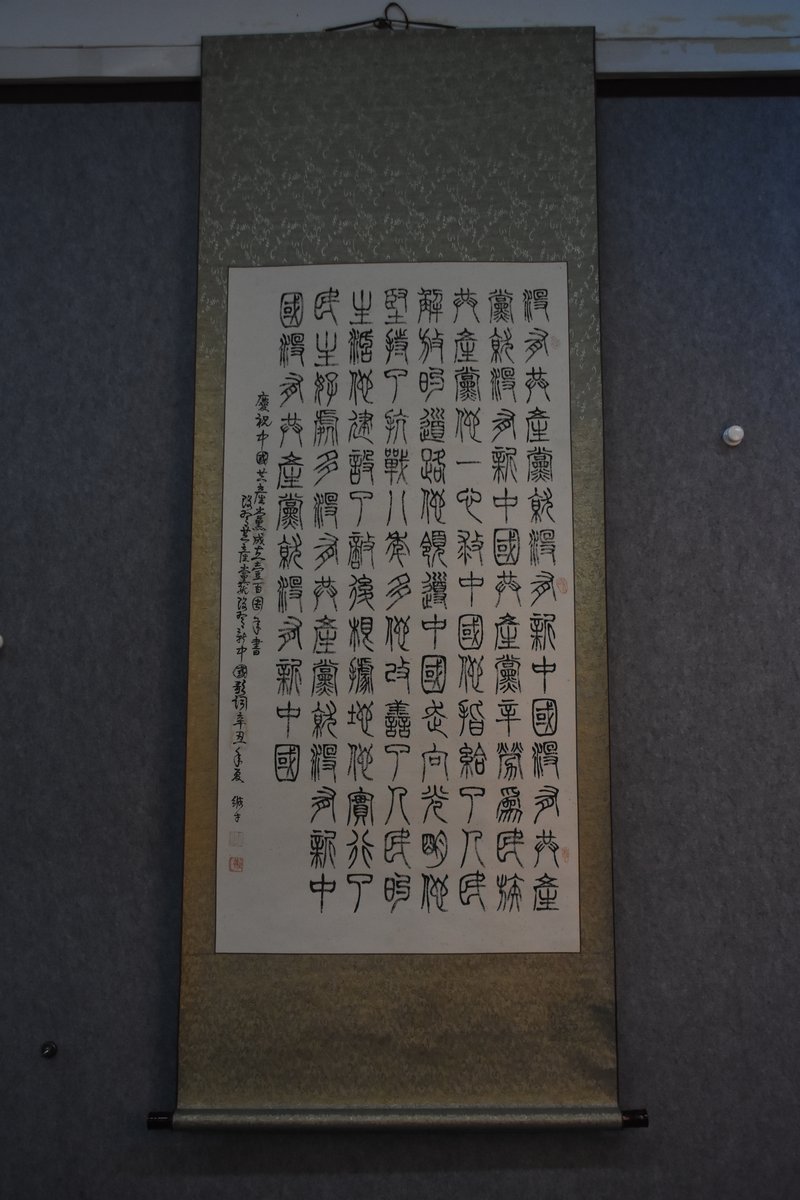 沒有共產黨就沒有新中國沒有共產
黨就沒有新中國共產黨辛勞為民族
共產黨他一心救中國他指給了人民
解放的道路他領導中國走向光明他
堅持了抗戰八年多他改善了人民的
生活他建設了敵後根據地他實行了
民主好處多沒有共產黨就沒有新中
國沒有共產黨就沒有新中國
慶祝中國共產黨成立壹百周年書
沒有共產黨就沒有新中國歌詞辛丑年夏